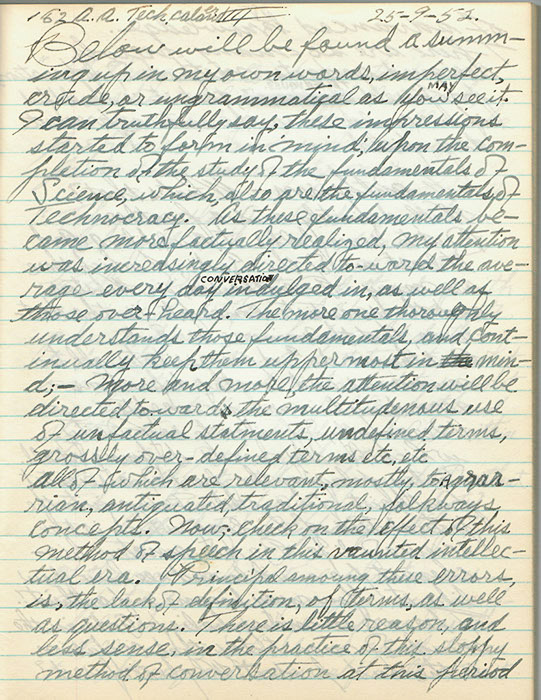 162 A.A. Tech. 25-9-52.
Below will be found a summ-
ing up in my own words, imperfect,
crude, or ungrammatical as you MAY see it.
I can truthfully say, these impressions
started to form in mind, upon the com-
pletion of the study of the fundamentals of
Science, which, also are the fundamentals of
Technocracy. As these fundamentals be-
came more factually realized, my attention
was increasingly directed to-ward the ave-
rage every day CONVERSATION indulged in, as well as
those over-heard. The more one thoroughly
understands those fundamentals, and cont-
inually keep them uppermost in min-
d;- More and more, the attention will be
directed towards, the multitudenous use
of unfactual statments, undefined terms,
grossly over-defined terms etc, etc
all of which are relevant, mostly, to Agrar-
rian, antiquated, traditional, folkways
concepts. Now; check on the effect of this
method of speech in this vaunted intellec-
tual era. Principal amoung these errors,
is, the lack of definition, of terms, as well
as questions. There is little reason, and
less sense, in the practice of this sloppy
method of conversation at this period